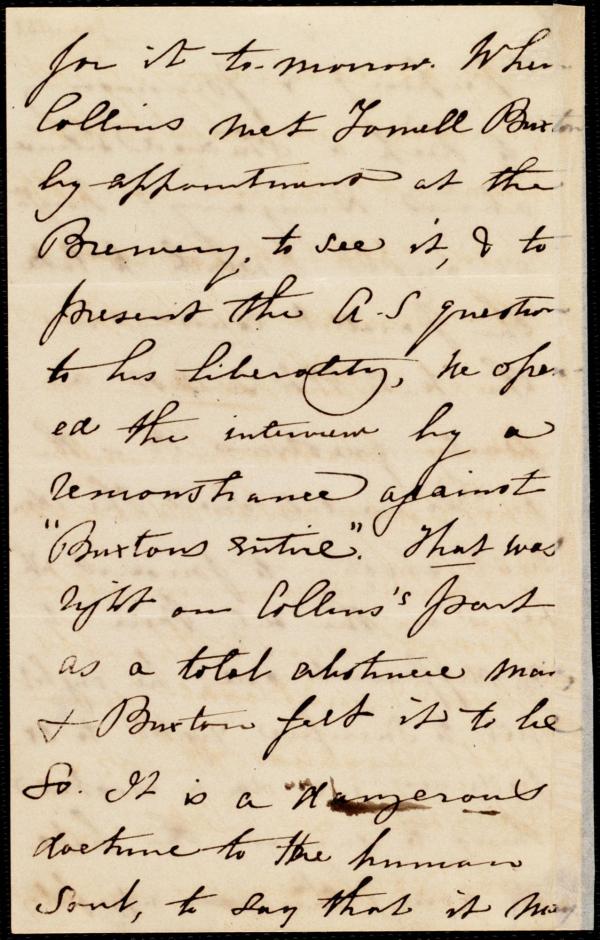 for it to-morrow. When
Collins met Fowell Buxton
by appointment at the
Brewery, to see it, & to
present the A-S question
to his liberality, he open-
ed the interview by a
remonstrance against
"Buxtons entire". That was
right on Collins's part
as a total abstinence man,
& Buxton felt it to be
so. It is a dangerous
doctrine to the human
Soul, to say that it may